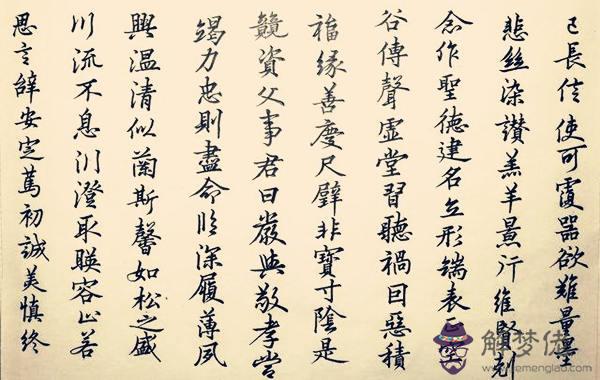 己長信使可覆器欲難量墨
悲絲染讚羔羊景行維賢剋
念作聖德建名立形端表正空
谷傳聲虛堂習聽禍因惡積
福緣善慶尺璧非寶寸陰是
競資父事君曰嚴與敬孝當
竭力忠則盡命臨深履薄夙
興溫清似蘭斯馨如松之盛
川流不息淵澄取暎容止若
思言辭安定篤初誠美慎終
解梦佬